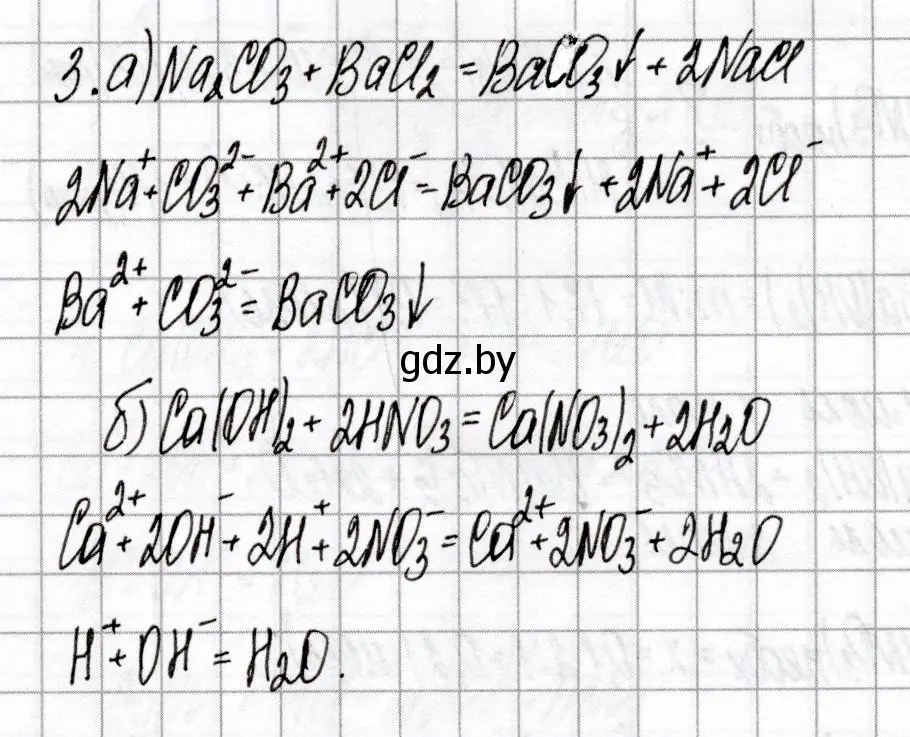 3. а) Na₂CO₃ + BaCl₂ = BaCO₃↓ + 2NaCl
2Na⁺ + CO₃²⁻ + Ba²⁺ + 2Cl⁻ = BaCO₃↓ + 2Na⁺ + 2Cl⁻
Ba²⁺ + CO₃²⁻ = BaCO₃↓
gdz.by
б) Ca(OH)₂ + 2HNO₃ = Ca(NO₃)₂ + 2H₂O
Ca²⁺ + 2OH⁻ + 2H⁺ + 2NO₃⁻ = Ca²⁺ + 2NO₃⁻ + 2H₂O
H⁺ + OH⁻ = H₂O.